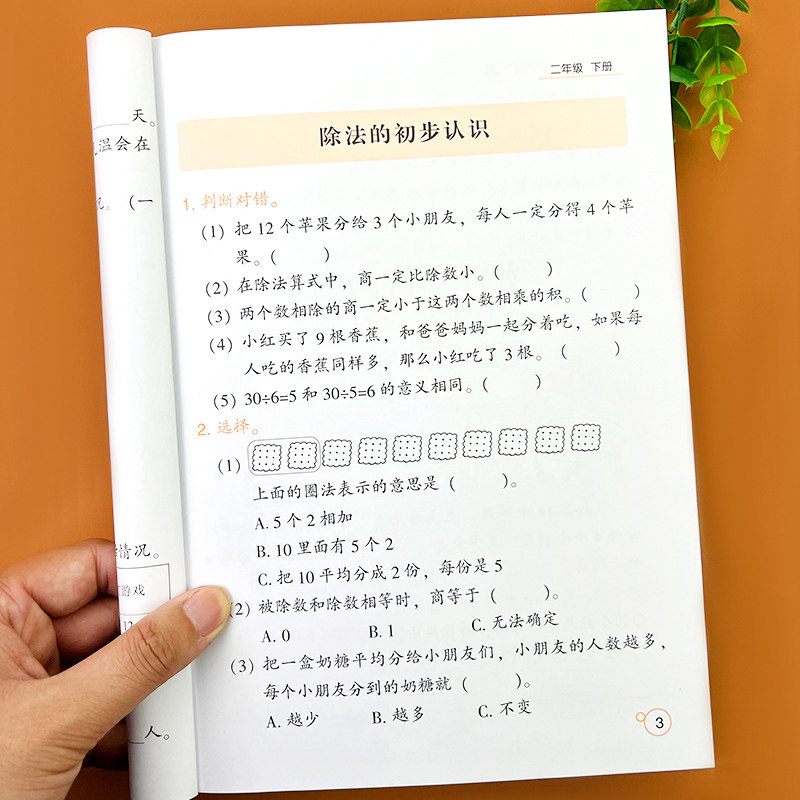 天。
温会在
。（一
情况。
游戏
12
人。
二年级 下册
除法的初步认识
1. 判断对错。
（1）把 12 个苹果分给 3 个小朋友，每人一定分得 4 个苹
果。（ ）
（2）在除法算式中，商一定比除数小。（ ）
（3）两个数相除的商一定小于这两个数相乘的积。（ ）
（4）小红买了 9 根香蕉，和爸爸妈妈一起分着吃，如果每
人吃的香蕉同样多，那么小红吃了 3 根。（ ）
（5）30÷6=5 和 30÷5=6 的意义相同。（ ）
2. 选择。
（1）
上面的圈法表示的意思是（ ）。
A. 5 个 2 相加
B. 10 里面有 5 个 2
C. 把 10 平均分成 2 份，每份是 5
（2）被除数和除数相等时，商等于（ ）。
A. 0 B. 1 C. 无法确定
（3）把一盒奶糖平均分给小朋友们，小朋友的人数越多，
每个小朋友分到的奶糖就（ ）。
A. 越少 B. 越多 C. 不变
3